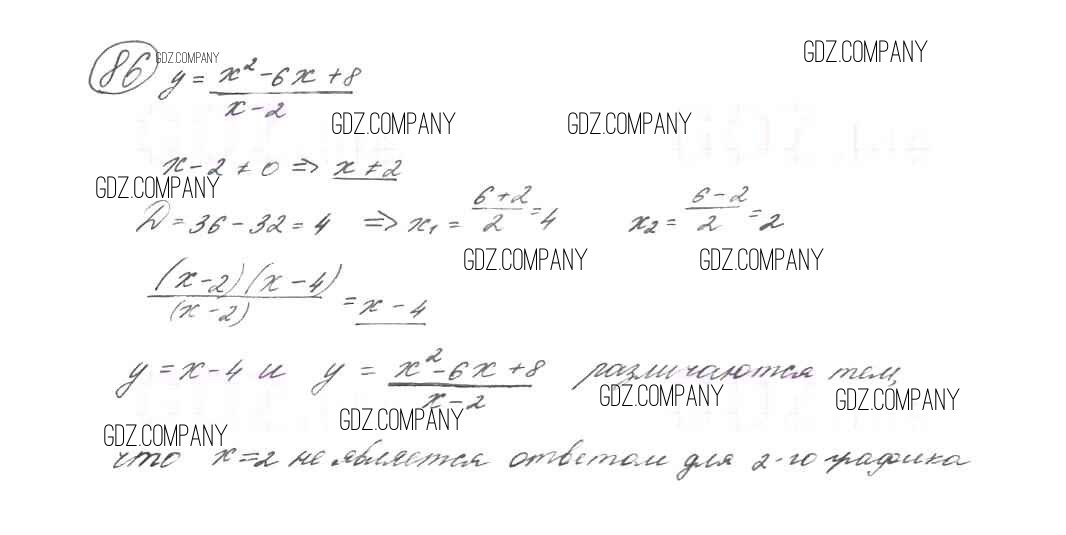 86 GDZ.COMPANY GDZ.COMPANY
y = (x² - 6x + 8)/(x - 2)
GDZ.COMPANY GDZ.COMPANY
x - 2 ≠ 0 => x ≠ 2
GDZ.COMPANY
D = 36 - 32 = 4 => x₁ = (6+2)/2 = 4 x₂ = (6-2)/2 = 2
GDZ.COMPANY GDZ.COMPANY
(x-2)(x-4)/(x-2) = x - 4
y = x - 4 и y = (x² - 6x + 8)/(x - 2) различаются тем,
GDZ.COMPANY GDZ.COMPANY
GDZ.COMPANY GDZ.COMPANY
что x = 2 не является ответом для 2-го графика